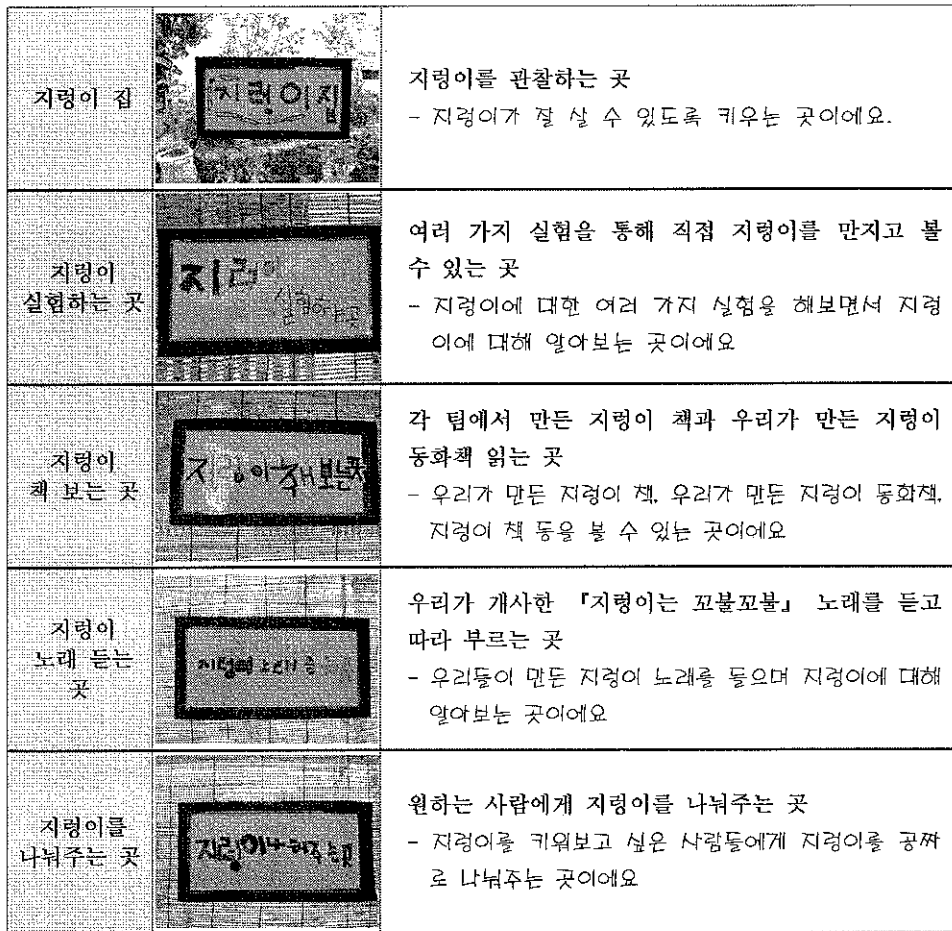 지렁이 집
지렁이집
지렁이를 관찰하는 곳
- 지렁이가 잘 살 수 있도록 키우는 곳이에요.
지렁이
실험하는 곳
지렁이
실험하는곳
여러 가지 실험을 통해 직접 지렁이를 만지고 볼
수 있는 곳
- 지렁이에 대한 여러 가지 실험을 해보면서 지렁
이에 대해 알아보는 곳이에요
지렁이
책 보는 곳
각 팀에서 만든 지렁이 책과 우리가 만든 지렁이
동화책 읽는 곳
- 우리가 만든 지렁이 책, 우리가 만든 지렁이 동화책,
지렁이 책 등을 볼 수 있는 곳이에요
지렁이
노래 듣는
곳
우리가 개사한 『지렁이는 꼬불꼬불』 노래를 듣고
따라 부르는 곳
- 우리들이 만든 지렁이 노래를 들으며 지렁이에 대해
알아보는 곳이에요
지렁이를
나눠주는 곳
원하는 사람에게 지렁이를 나눠주는 곳
- 지렁이를 키워보고 싶은 사람들에게 지렁이를 공짜
로 나눠주는 곳이에요